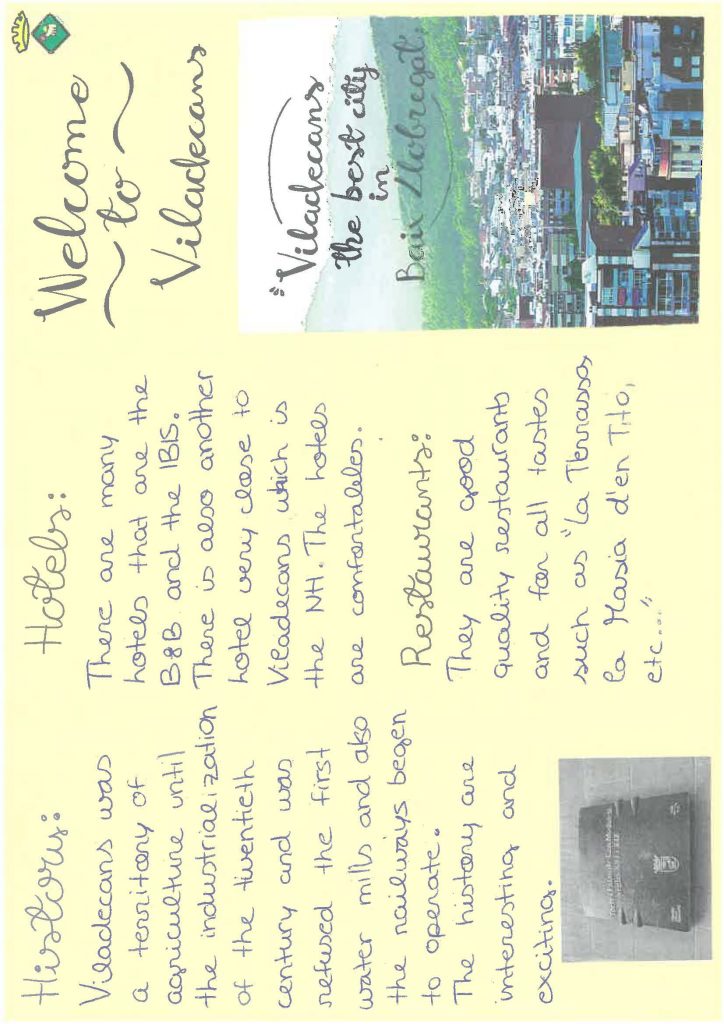 History:
Viladecans was
a territory of
agriculture until
the industrialization
of the twentieth
century and was
refused the first
water mills and also
the railways began
to operate.
The history are
interesting and
exciting.
Hotels:
There are many
hotels that are the
B&B and the IBIS.
There is also another
hotel very close to
Viladecans which is
the NH. The hotels
are confortables.
Restaurants:
They are good
quality restaurants
and for all tastes
such as "La Terrassa,
la Masia d'en Tito,
etc..."
Welcome
to
Viladecans
"Viladecans
the best city
in
Baix Llobregat.